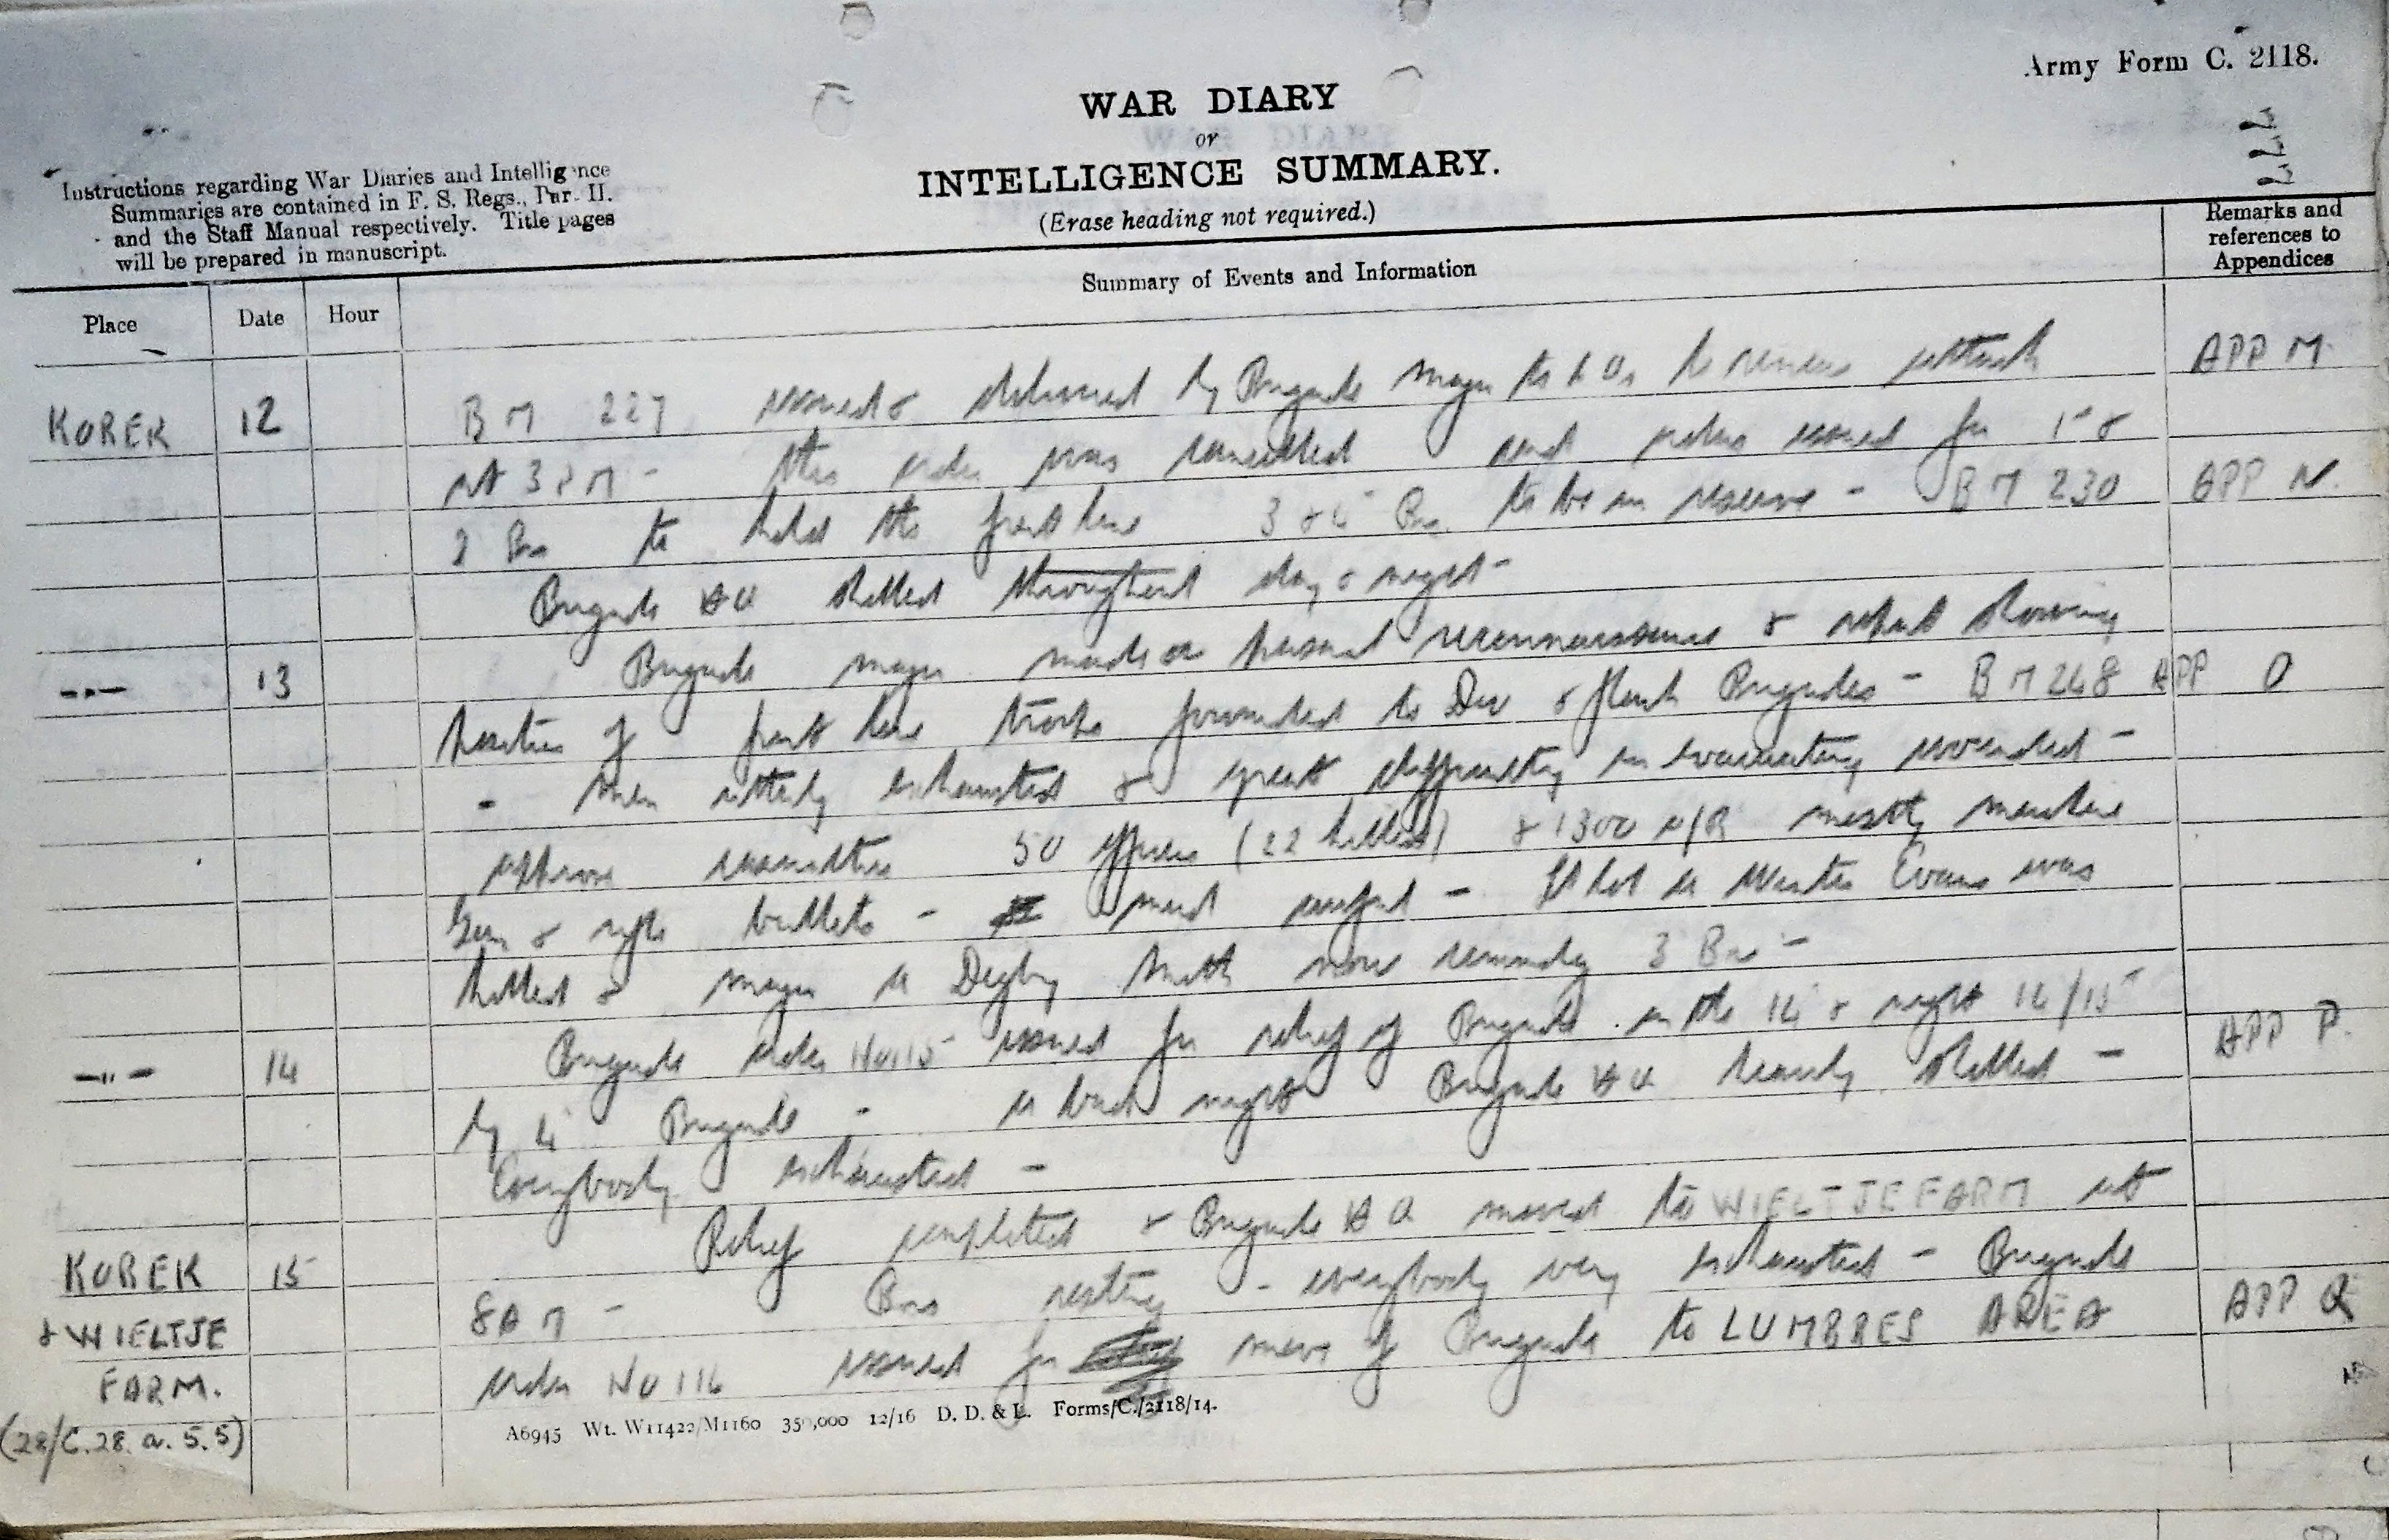 Army Form C. 2118.
WAR DIARY
or
INTELLIGENCE SUMMARY.
(Erase heading not required.)
Instructions regarding War Diaries and Intelligence
Summaries are contained in F. S. Regs., Par. II.
and the Staff Manual respectively. Title pages
will be prepared in manuscript.
Remarks and
references to
Appendices
Summary of Events and Information
Place Date Hour
KOREK 12 BM 227 issued & delivered by Brigade Major to COs to renew attack APP M
at 3 PM - this order was cancelled and orders issued for 1st &
2 Bns to hold the front line 3 & 4 Bns. to be in reserve - BM 230 APP N.
Brigade HQ shelled throughout day & night -
-"- 13 Brigade Major made a personal reconnaissance & report showing
position of front line troops forwarded to Div & flank Brigades - BM 248 APP O
- Men utterly exhausted & great difficulty in evacuating wounded -
approx casualties 50 officers (22 killed) & 1300 O/R mostly machine
Gun & rifle bullets - mud awful - Lt Col A Winter Evans was
killed & Major A Digby Smith now commdg 3 Bn -
-"- 14 Brigade order No 115 issued for relief of Brigade on the 14 & night 14/15 APP P.
by 4 Brigade - A bad night Brigade HQ heavily shelled -
Everybody exhausted -
KOREK 15 Relief completed & Brigade HQ moved to WIELTJE FARM at
& WIELTJE 8 AM - Bns resting - everybody very exhausted - Brigade
FARM. order No 116 issued for move of Brigade to LUMBRES AREA APP Q
(28/C.28.a.5.5)
A6945 Wt. W11422/M1160 350,000 12/16 D. D. & L. Forms/C./2118/14.